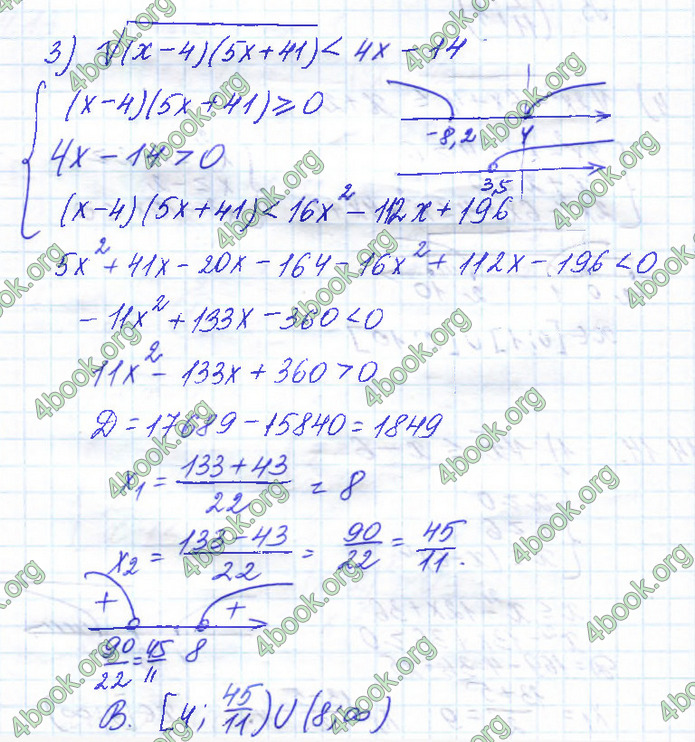 3) √(x-4)(5x+41) < 4x-14
{ (x-4)(5x+41) ⩾ 0
4x-14 > 0
(x-4)(5x+41) < 16x²-112x+196
-8,2 4
3,5
5x²+41x-20x-164-16x²+112x-196<0
-11x²+133x-360<0
11x²-133x+360>0
D=17689-15840=1849
x₁ = (133+43)/22 = 8
x₂ = (133-43)/22 = 90/22 = 45/11.
+ +
90/22 = 45/11 8
В. [4; 45/11) ∪ (8; ∞)
4book.org